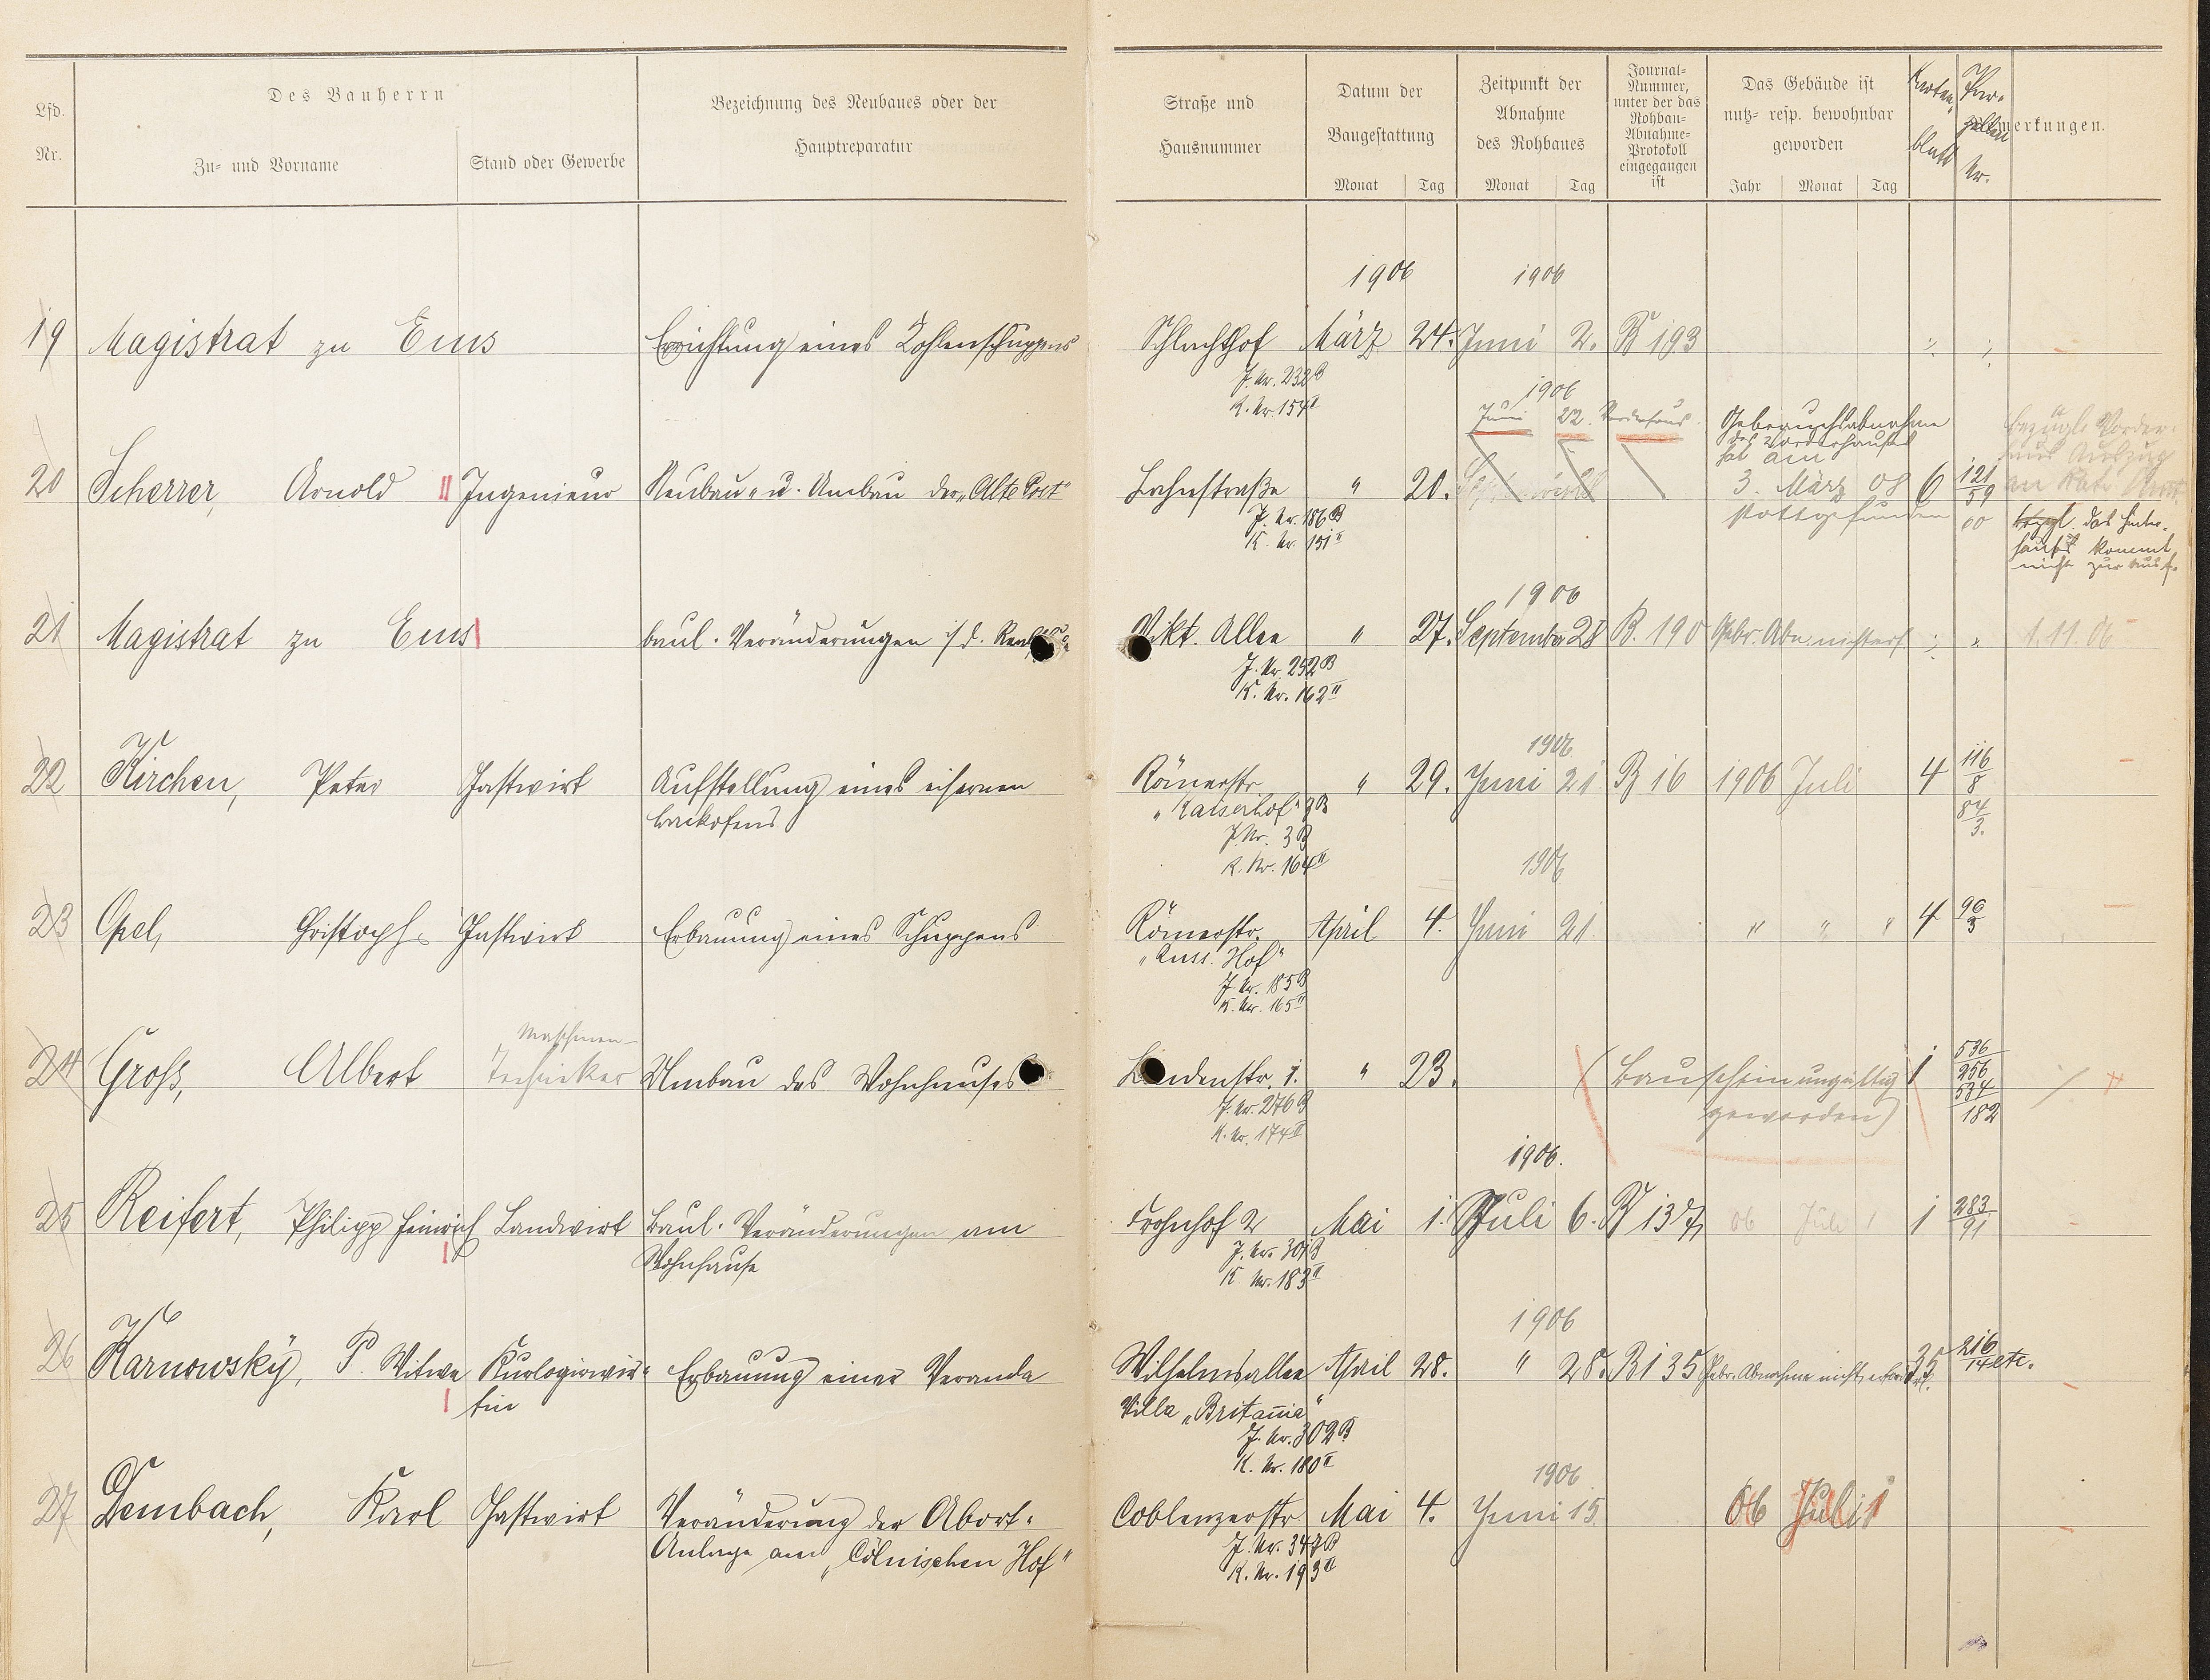 Lfd. Nr.
Des Bauherrn
Zu- und Vorname
Stand oder Gewerbe
Bezeichnung des Neubaues oder der
Hauptreparatur
Straße und
Hausnummer
Datum der
Baugestattung
Monat Tag
Zeitpunkt der
Abnahme
des Rohbaues
Monat Tag
Journal-
Nummer,
unter der das
Rohbau-
Abnahme-
Protokoll
eingegangen
ist
Das Gebäude ist
nutz- resp. bewohnbar
geworden
Jahr Monat Tag
Karten-
blatt
Par-
zellen
Nr.
merkungen.
1906 1906
19 Magistrat zu Ems Errichtung eines Kohlenschuppens Schlachthof März 24. Juni 2. B 193
J. Nr. 232 B
K. Nr. 154 II
1906
Juni 22. Vorderhaus
Gebrauchsabnahme
des Vorderhauses
hat am
bezügl. Vorder-
haus Auszug
20 Scherrer, Arnold II Ingenieur Neubau- u. Umbau der „Alte Post" Lahnstraße " 20. September 3. März 08 6 121/59 an Kat. Amt
stattgefunden 60
J. Nr. 186 B
K. Nr. 151 II
bezgl. das Hinter-
haus kommt
nicht zur Ausf.
1906
21 Magistrat zu Ems baul. Veränderungen i/d. Vikt. Allee " 27. September 28 B. 190 Gebr. Abn. nicht erf. 1.11.06
J. Nr. 252 B
K. Nr. 162 II
1906
22 Kirchen, Peter Gastwirt Aufstellung eines eisernen Römerstr. " 29. Juni 21. B 16 1906 Juli 4 116/8
Backofens „Kaiserhof" 84/3.
J. Nr. 3 B
K. Nr. 164 II
1906
23 Opel, Christoph Gastwirt Erbauung eines Schuppens Römerstr. April 4. Juni 21. " " " 4 90/3
„Russ. Hof"
J. Nr. 185 B
K. Nr. 165 II
Maschinen-
24 Groß, Albert Techniker Umbau des Wohnhauses Lindenstr. 1. " 23. (Bauschein ungültig 1 536/256
geworden) 534/182
J. Nr. 276 B
K. Nr. 174 II
1906.
25 Reifert, Philipp Heinrich Landwirt Baul. Veränderungen am Frohnhof 2 Mai 1. Juli 6. B 137 06 Juli 1 1 283/91
Wohnhause
J. Nr. 301 B
K. Nr. 183 II
1906
26 Karnowsky, P. Witwe Kurlogirwir- Erbauung einer Veranda Wilhelmsallee April 28. " 28. B 135 Gebr. Abnahme nicht erford. 35 216/14 etc.
tin Villa „Britania"
J. Nr. 302 B
K. Nr. 180 II
1906
27 Dembach, Karl Gastwirt Veränderung der Abort- Coblenzerstr. Mai 4. Juni 15. 06 Juli 1
Anlage am „Cölnischen Hof"
J. Nr. 347 B
K. Nr. 193 II